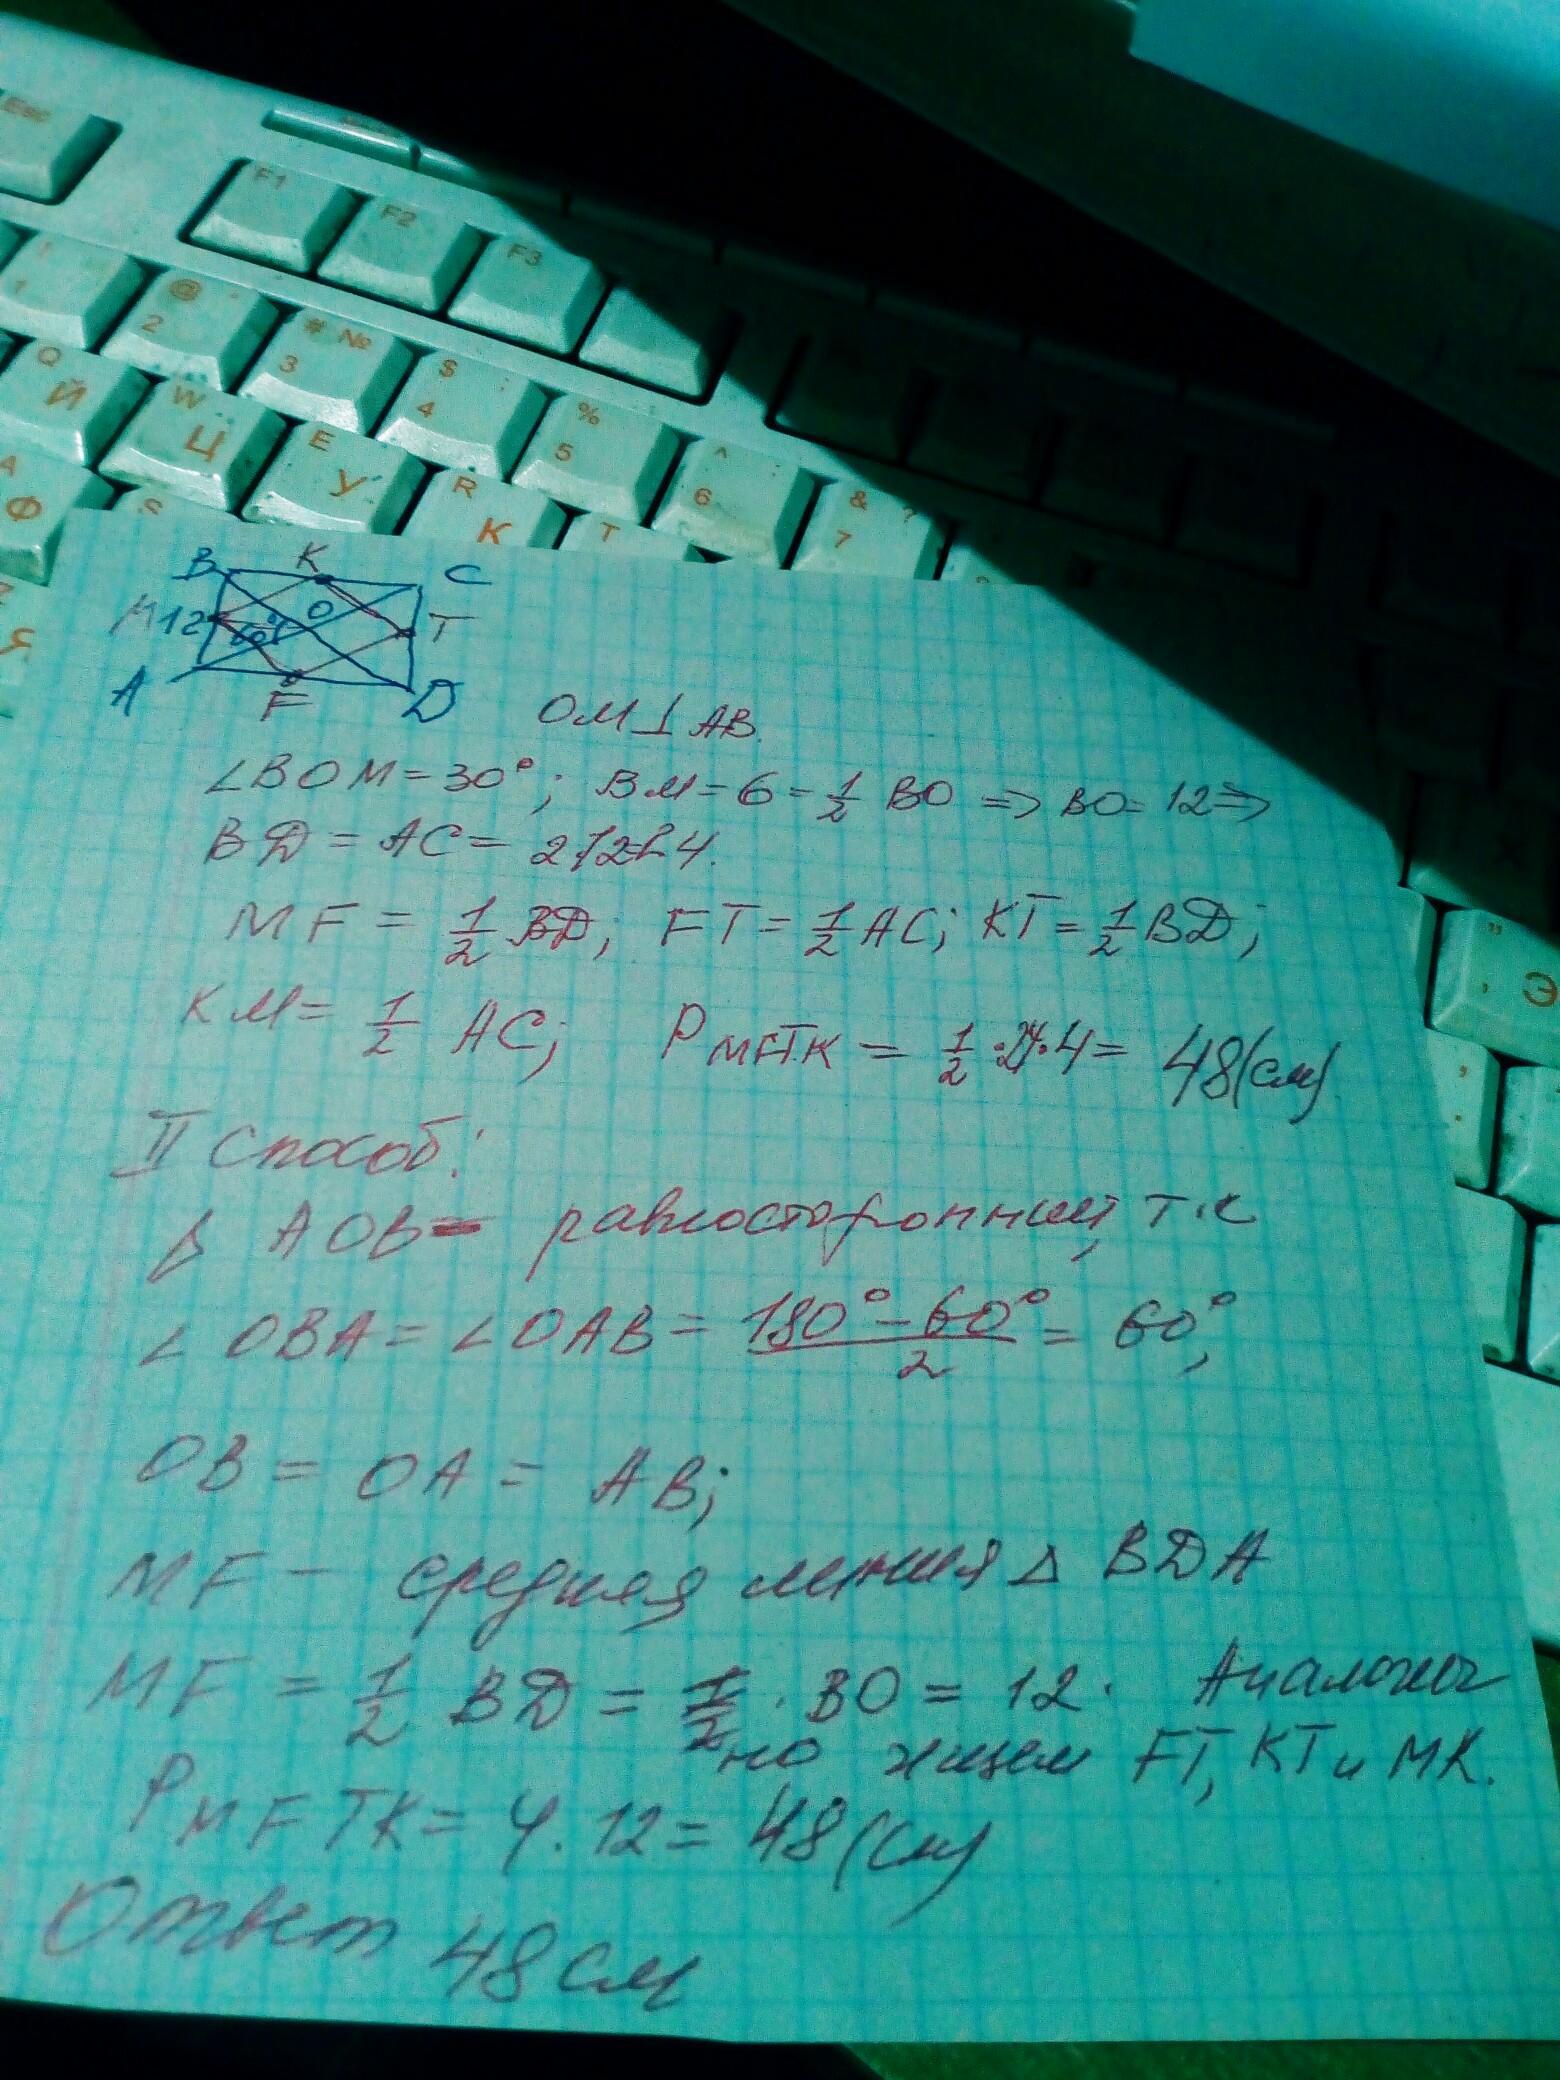 Esc
F1 F2 F3
! 1 @ 2 # № 3 $ ; 4 % 5 ^ 6 & ? 7
Q Й W Ц E У R К T
A Ф S
Я
Э
B K C
M 12 60° O T
A F D
OM⊥AB.
∠BOM=30°; BM=6=1/2 BO => BO=12=>
BD=AC= 2·12=24.
MF = 1/2 BD; FT=1/2 AC; KT=1/2 BD;
KM= 1/2 AC; P MFTK = 1/2 ·24·4= 48(см)
II способ:
Δ AOB= равносторонний, т.к
∠OBA=∠OAB= (180°-60°)/2 = 60°;
OB = OA = AB;
MF - средняя линия Δ BDA
MF = 1/2 BD = BO = 12. Аналогич
но ищем FT, KT и MK.
P MFTK= 4·12= 48(см)
Ответ 48 см